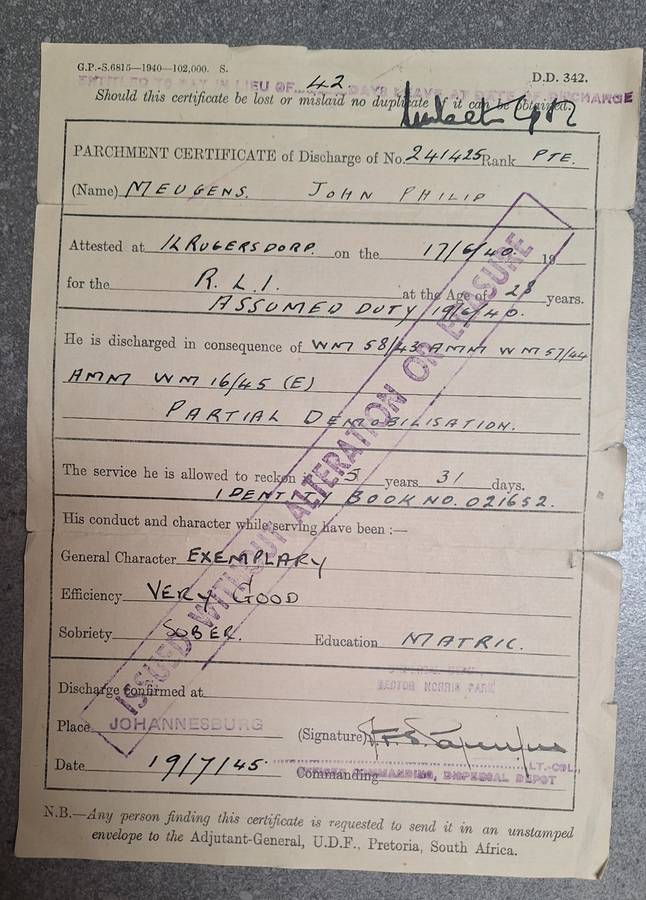 G.P.-S.6815—1940—102,000. S.
D.D. 342.
ENTITLED TO PAY IN LIEU OF 42 DAYS LEAVE AT DATE OF DISCHARGE
Should this certificate be lost or mislaid no duplicate of it can be obtained.
PARCHMENT CERTIFICATE of Discharge of No. 241425 Rank PTE.
(Name) MEUGENS. JOHN PHILIP
Attested at KRUGERSDORP. on the 17/6/40. 19
for the R.L.I. at the Age of 28 years.
ASSUMED DUTY 19/6/40.
He is discharged in consequence of WM 58/43 AMM WM 57/44
AMM WM 16/45 (E)
PARTIAL DEMOBILISATION.
The service he is allowed to reckon is 5 years 31 days.
IDENTITY BOOK NO. 021652.
His conduct and character while serving have been :—
General Character EXEMPLARY
Efficiency VERY GOOD
Sobriety SOBER. Education MATRIC.
ISSUED WITHOUT ALTERATION OR ERASURE
HECTOR NORRIS PARK
Discharge confirmed at
Place JOHANNESBURG
(Signature)
LT.-COL.,
Date 19/7/45.
Commanding
OFFICER COMMANDING, DISPERSAL DEPOT
N.B.—Any person finding this certificate is requested to send it in an unstamped
envelope to the Adjutant-General, U.D.F., Pretoria, South Africa.